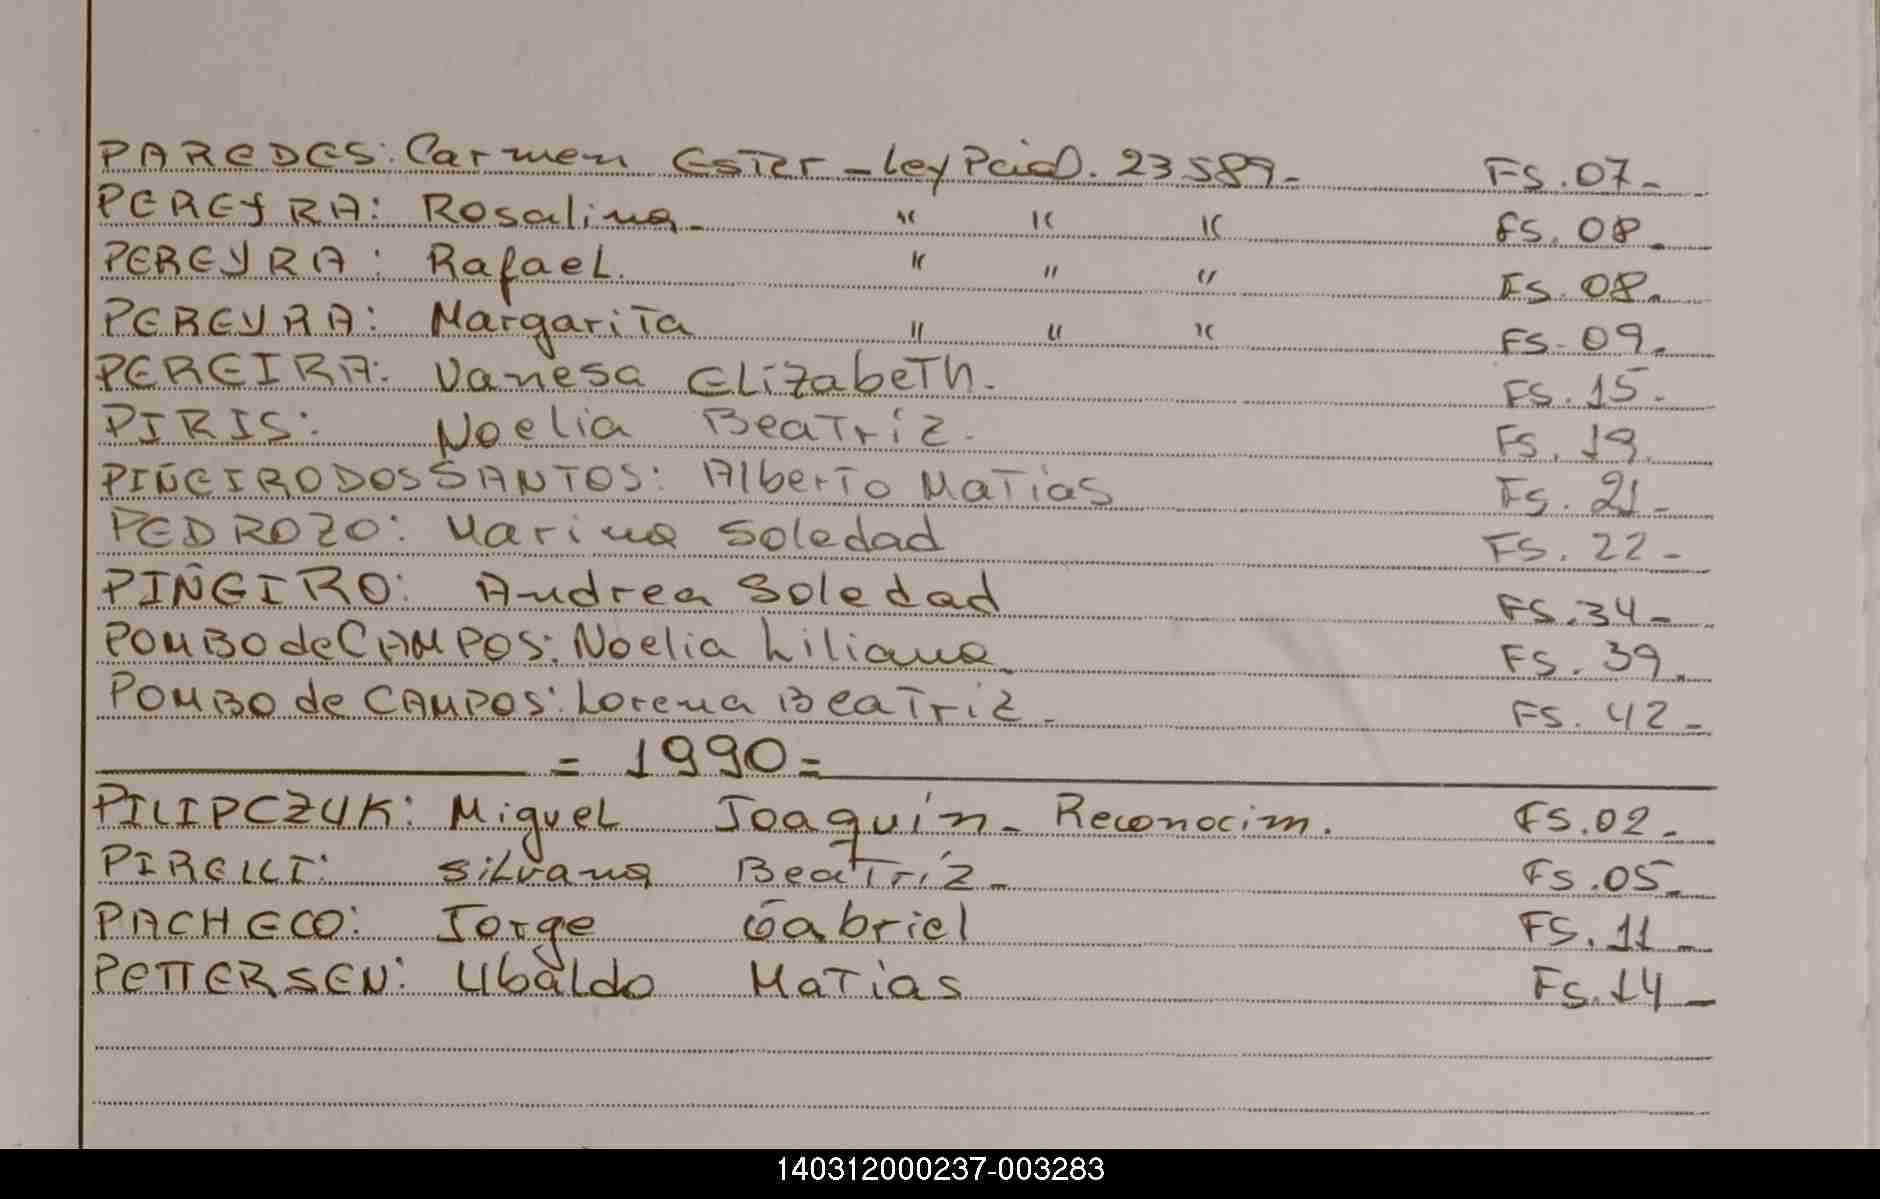 PAREDES: Carmen Ester - Ley Pcial. 23589- FS. 07-
PEREYRA: Rosalina - " " " FS. 08-
PEREYRA: Rafael. " " " FS. 08-
PEREYRA: Margarita " " " FS. 09.
PEREIRA: Vanesa Elizabeth. FS. 15-
PIRIS: Noelia Beatríz. FS. 19.
PIÑEIRO DOS SANTOS: Alberto Matías FS. 21-
PEDROZO: Marina Soledad FS. 22-
PIÑEIRO: Andrea Soledad FS. 34-
POMBO de CAMPOS: Noelia Liliana FS. 39.
POMBO de CAMPOS: Lorena Beatriz. FS. 42-
= 1990=
PILIPCZUK: Miguel Joaquín - Reconocim. FS. 02-
PIRELLI: Silvana Beatríz - FS. 05-
PACHECO: Jorge Gabriel FS. 11-
PETTERSEN: Ubaldo Matías FS. 14-
140312000237-003283